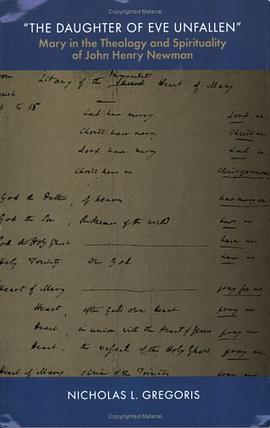 Copyrighted Material
“THE DAUGHTER OF EVE UNFALLEN”
Mary in the Theology and Spirituality
of John Henry Newman
Litany of the Immaculate Heart of Mary
Lord have mercy Lord
Christ have mercy Christ
Lord have mercy Lord
Christ hear us Christ
God the Father, of heaven have mercy
God the Son, Redeemer of the world have
God the Holy Ghost have
Holy Trinity One God have
Heart of Mary pray for us
Heart, after God's own Heart pray
Heart, in union with the Heart of Jesus pray
Heart, the vessel of the Holy Ghost pray
Heart of Mary shrine of the Trinity pray
NICHOLAS L. GREGORIS
Copyrighted Material